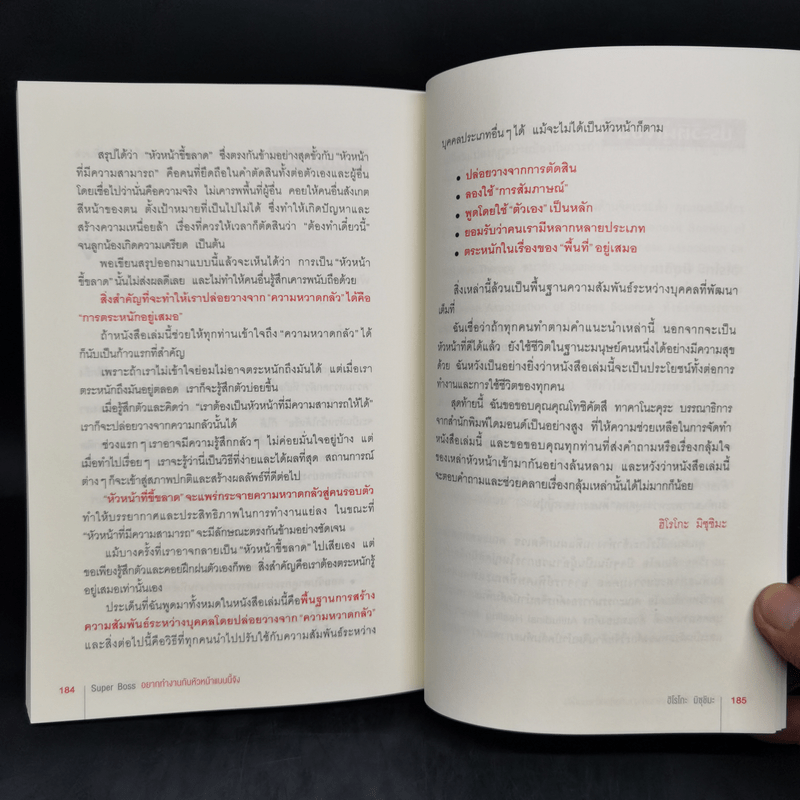 สรุปได้ว่า “หัวหน้าขี้ขลาด” ซึ่งตรงกันข้ามอย่างสุดขั้วกับ “หัวหน้า
ที่มีความสามารถ” คือคนที่ยึดถือในคำตัดสินทั้งต่อตัวเองและผู้อื่น
โดยเชื่อไปว่านั่นคือความจริง ไม่เคารพพื้นที่ผู้อื่น คอยให้คนอื่นสังเกต
สีหน้าของตน ตั้งเป้าหมายที่เป็นไปไม่ได้ ซึ่งทำให้เกิดปัญหาและ
สร้างความเหนื่อยล้า เรื่องที่ควรให้เวลาก็ตัดสินว่า “ต้องทำเดี๋ยวนี้”
จนลูกน้องเกิดความเครียด เป็นต้น
พอเขียนสรุปออกมาแบบนี้แล้วจะเห็นได้ว่า การเป็น “หัวหน้า
ขี้ขลาด” นั้นไม่ส่งผลดีเลย และไม่ทำให้คนอื่นรู้สึกเคารพนับถือด้วย
สิ่งสำคัญที่จะทำให้เราปล่อยวางจาก “ความหวาดกลัว” ได้คือ
“การตระหนักอยู่เสมอ”
ถ้าหนังสือเล่มนี้ช่วยให้ทุกท่านเข้าใจถึง “ความหวาดกลัว” ได้
ก็นับเป็นก้าวแรกที่สำคัญ
เพราะถ้าเราไม่เข้าใจย่อมไม่อาจตระหนักถึงมันได้ แต่เมื่อเรา
ตระหนักถึงมันอยู่ตลอด เราก็จะรู้สึกตัวบ่อยขึ้น
เมื่อรู้สึกตัวและคิดว่า “เราต้องเป็นหัวหน้าที่มีความสามารถให้ได้”
เราก็จะปล่อยวางจากความกลัวนั้นได้
ช่วงแรก ๆ เราอาจมีความรู้สึกกลัว ๆ ไม่ค่อยมั่นใจอยู่บ้าง แต่
เมื่อทำไปเรื่อย ๆ เราจะรู้ว่านี่เป็นวิธีที่ง่ายและได้ผลที่สุด สถานการณ์
ต่าง ๆ ก็จะเข้าสู่สภาพปกติและสร้างผลลัพธ์ที่ดีต่อไป
“หัวหน้าที่ขี้ขลาด” จะแพร่กระจายความหวาดกลัวสู่คนรอบตัว
ทำให้บรรยากาศและประสิทธิภาพในการทำงานแย่ลง ในขณะที่
“หัวหน้าที่มีความสามารถ” จะมีลักษณะตรงกันข้ามอย่างชัดเจน
แม้บางครั้งที่เราอาจกลายเป็น “หัวหน้าขี้ขลาด” ไปเสียเอง แต่
ขอเพียงรู้สึกตัวและคอยฝึกฝนตัวเองก็พอ สิ่งสำคัญคือเราต้องตระหนักรู้
อยู่เสมอเท่านั้นเอง
ประเด็นที่ฉันพูดมาทั้งหมดในหนังสือเล่มนี้คือพื้นฐานการสร้าง
ความสัมพันธ์ระหว่างบุคคลโดยปล่อยวางจาก “ความหวาดกลัว”
และสิ่งต่อไปนี้คือวิธีที่ทุกคนนำไปปรับใช้กับความสัมพันธ์ระหว่าง
184 Super Boss อยากทำงานกับหัวหน้าแบบนี้จัง
บุคคลประเภทอื่น ๆ ได้ แม้จะไม่ได้เป็นหัวหน้าก็ตาม
• ปล่อยวางจากการตัดสิน
• ลองใช้ “การสัมภาษณ์”
• พูดโดยใช้ “ตัวเอง” เป็นหลัก
• ยอมรับว่าคนเรามีหลากหลายประเภท
• ตระหนักในเรื่องของ “พื้นที่” อยู่เสมอ
สิ่งเหล่านี้ล้วนเป็นพื้นฐานความสัมพันธ์ระหว่างบุคคลที่พัฒนา
เต็มที่
ฉันเชื่อว่าถ้าทุกคนทำตามคำแนะนำเหล่านี้ นอกจากจะเป็น
หัวหน้าที่ดีได้แล้ว ยังใช้ชีวิตในฐานะมนุษย์คนหนึ่งได้อย่างมีความสุข
ด้วย ฉันหวังเป็นอย่างยิ่งว่าหนังสือเล่มนี้จะเป็นประโยชน์ทั้งต่อการ
ทำงานและการใช้ชีวิตของทุกคน
สุดท้ายนี้ ฉันขอขอบคุณคุณโทชิคัตสึ ทาคาโนะคุระ บรรณาธิการ
จากสำนักพิมพ์ไดมอนด์เป็นอย่างสูง ที่ให้ความช่วยเหลือในการจัดทำ
หนังสือเล่มนี้ และขอขอบคุณทุกท่านที่ส่งคำถามหรือเรื่องกลุ้มใจ
ของเหล่าหัวหน้าเข้ามากันอย่างล้นหลาม และหวังว่าหนังสือเล่มนี้
จะตอบคำถามและช่วยคลายเรื่องกลุ้มเหล่านั้นได้ไม่มากก็น้อย
ฮิโรโกะ มิซุชิมะ
ฮิโรโกะ มิซุชิมะ 185